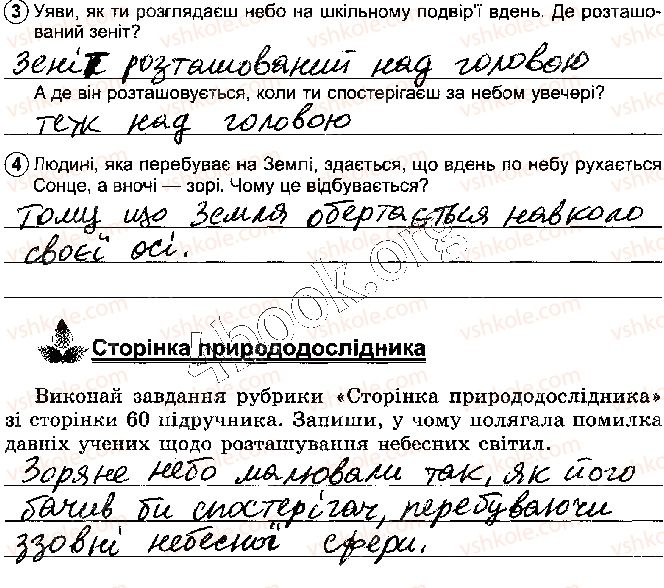 3 Уяви, як ти розглядаєш небо на шкільному подвір'ї вдень. Де розташо-
ваний зеніт?
Зеніт розташований над головою
А де він розташовується, коли ти спостерігаєш за небом увечері?
теж над головою
4 Людині, яка перебуває на Землі, здається, що вдень по небу рухається
Сонце, а вночі — зорі. Чому це відбувається?
Тому що Земля обертається навколо
своєї осі.
4book.org
Сторінка природодослідника
Виконай завдання рубрики «Сторінка природодослідника»
зі сторінки 60 підручника. Запиши, у чому полягала помилка
давніх учених щодо розташування небесних світил.
Зоряне небо малювали так, як його
бачив би спостерігач, перебуваючи
ззовні небесної сфери.
vshkole.com